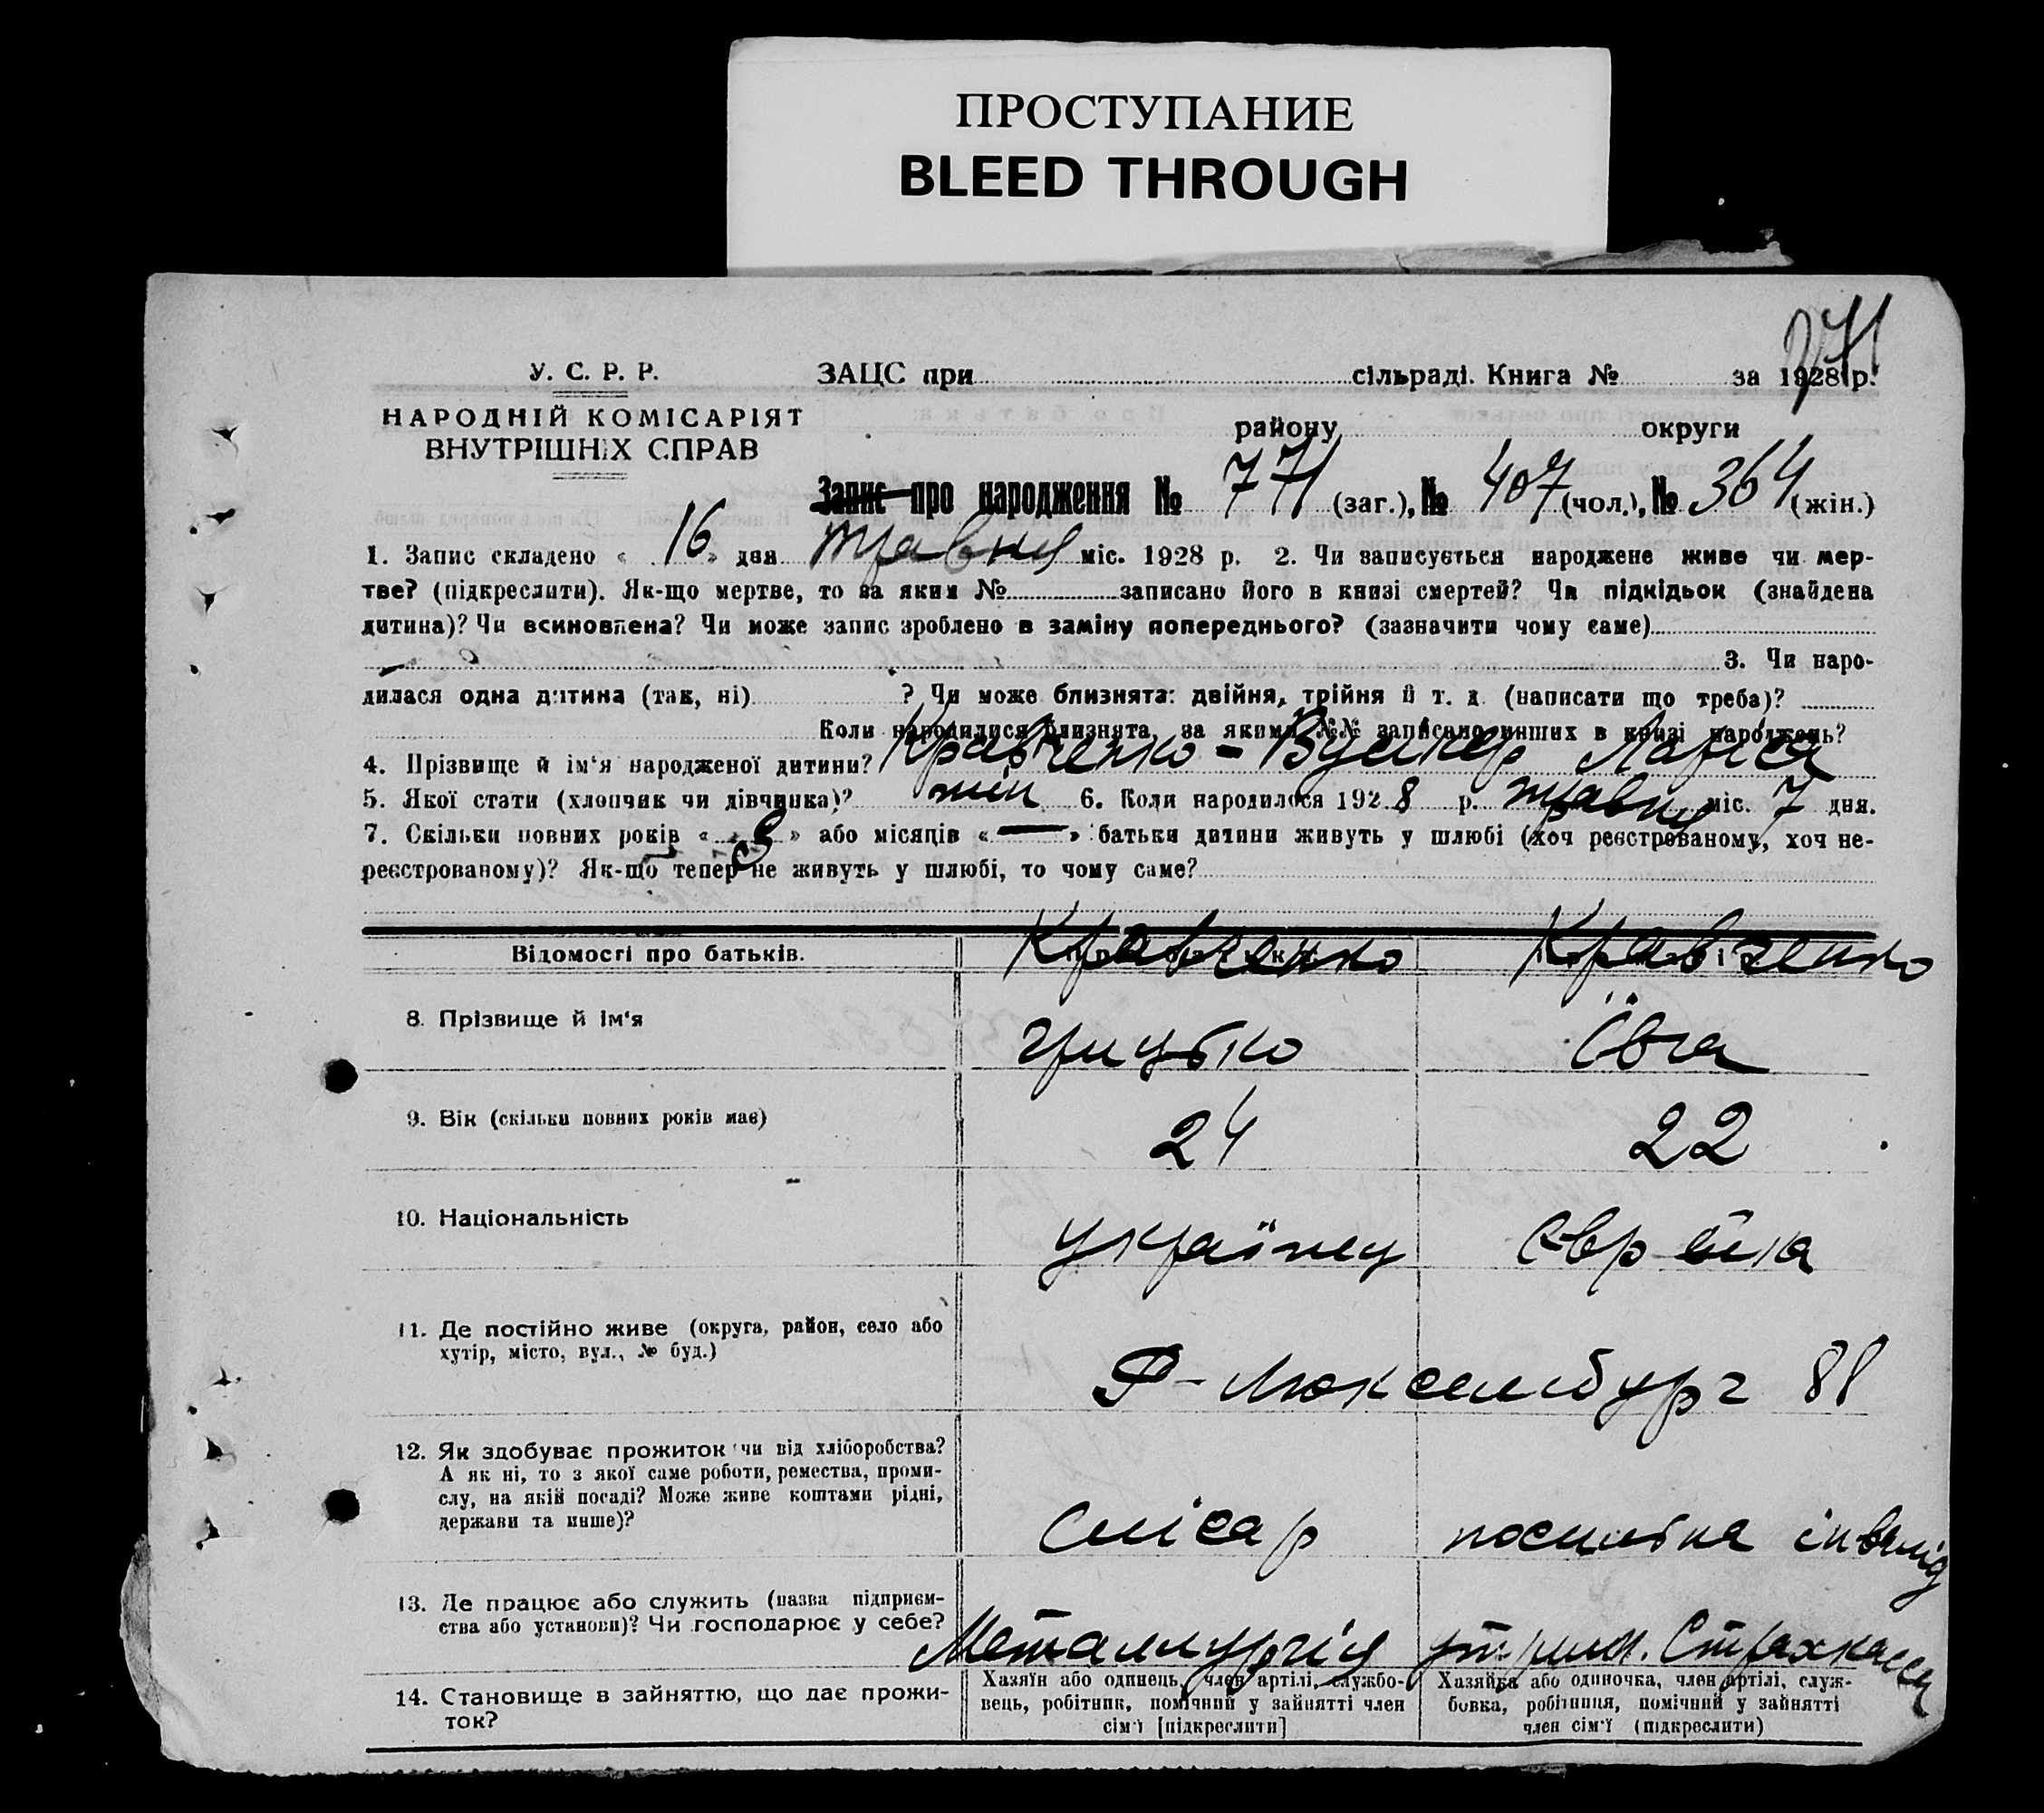 ПРОСТУПАНИЕ
BLEED THROUGH
771
У. С. Р. Р.
ЗАЦС при сільраді. Книга № за 1928 р.
НАРОДНІЙ КОМІСАРІЯТ
ВНУТРІШНІХ СПРАВ
району округи
Запис про народження № 771 (заг.), № 407 (чол.), № 364 (жін.)
1. Запис складено « 16 » дня травня міс. 1928 р. 2. Чи записується народжене живе чи мер-
тве? (підкреслити). Як-що мертве, то за яким № записано його в книзі смертей? Чи підкідьок (знайдена
дитина)? Чи всиновлена? Чи може запис зроблено в заміну попереднього? (зазначити чому саме)
3. Чи наро-
дилася одна дитина (так, ні) ? Чи може близнята: двійня, трійня й т. д. (написати що треба)?
Коли народилися близнята, за якими №№ записано инших в книзі народжень?
4. Прізвище й ім'я народженої дитини? Кравченко - Лариса
5. Якої стати (хлопчик чи дівчинка)? жін 6. Коли народилося 1928 р. травня міс. 7 дня.
7. Скільки повних років « 3 » або місяців « — » батьки дитини живуть у шлюбі (хоч реєстрованому, хоч не-
реєстрованому)? Як-що тепер не живуть у шлюбі, то чому саме?
Відомості про батьків.
8. Прізвище й ім'я Кравченко Грицько Кравченко Євга
9. Вік (скільки повних років має) 24 22
10. Національність українець єврейка
11. Де постійно живе (округа, район, село або
хутір, місто, вул., № буд.)
Р-Люксембург 88
12. Як здобуває прожиток чи від хліборобства?
А як ні, то з якої саме роботи, ремества, проми-
слу, на якій посаді? Може живе коштами рідні,
держави та инше)?
Слісар посильна інвалід
13. Де працює або служить (назва підприєм-
ства або установи)? Чи господарює у себе?
Металлургія утрим. Страхкаси
14. Становище в зайняттю, що дає прожи-
ток?
Хазяїн або одинець, член артілі, службо-
вець, робітник, помічний у зайнятті член
сім'ї [підкреслити]
Хазяйка або одиночка, член артілі, служ-
бовка, робітниця, помічний у зайнятті
член сім'ї (підкреслити)